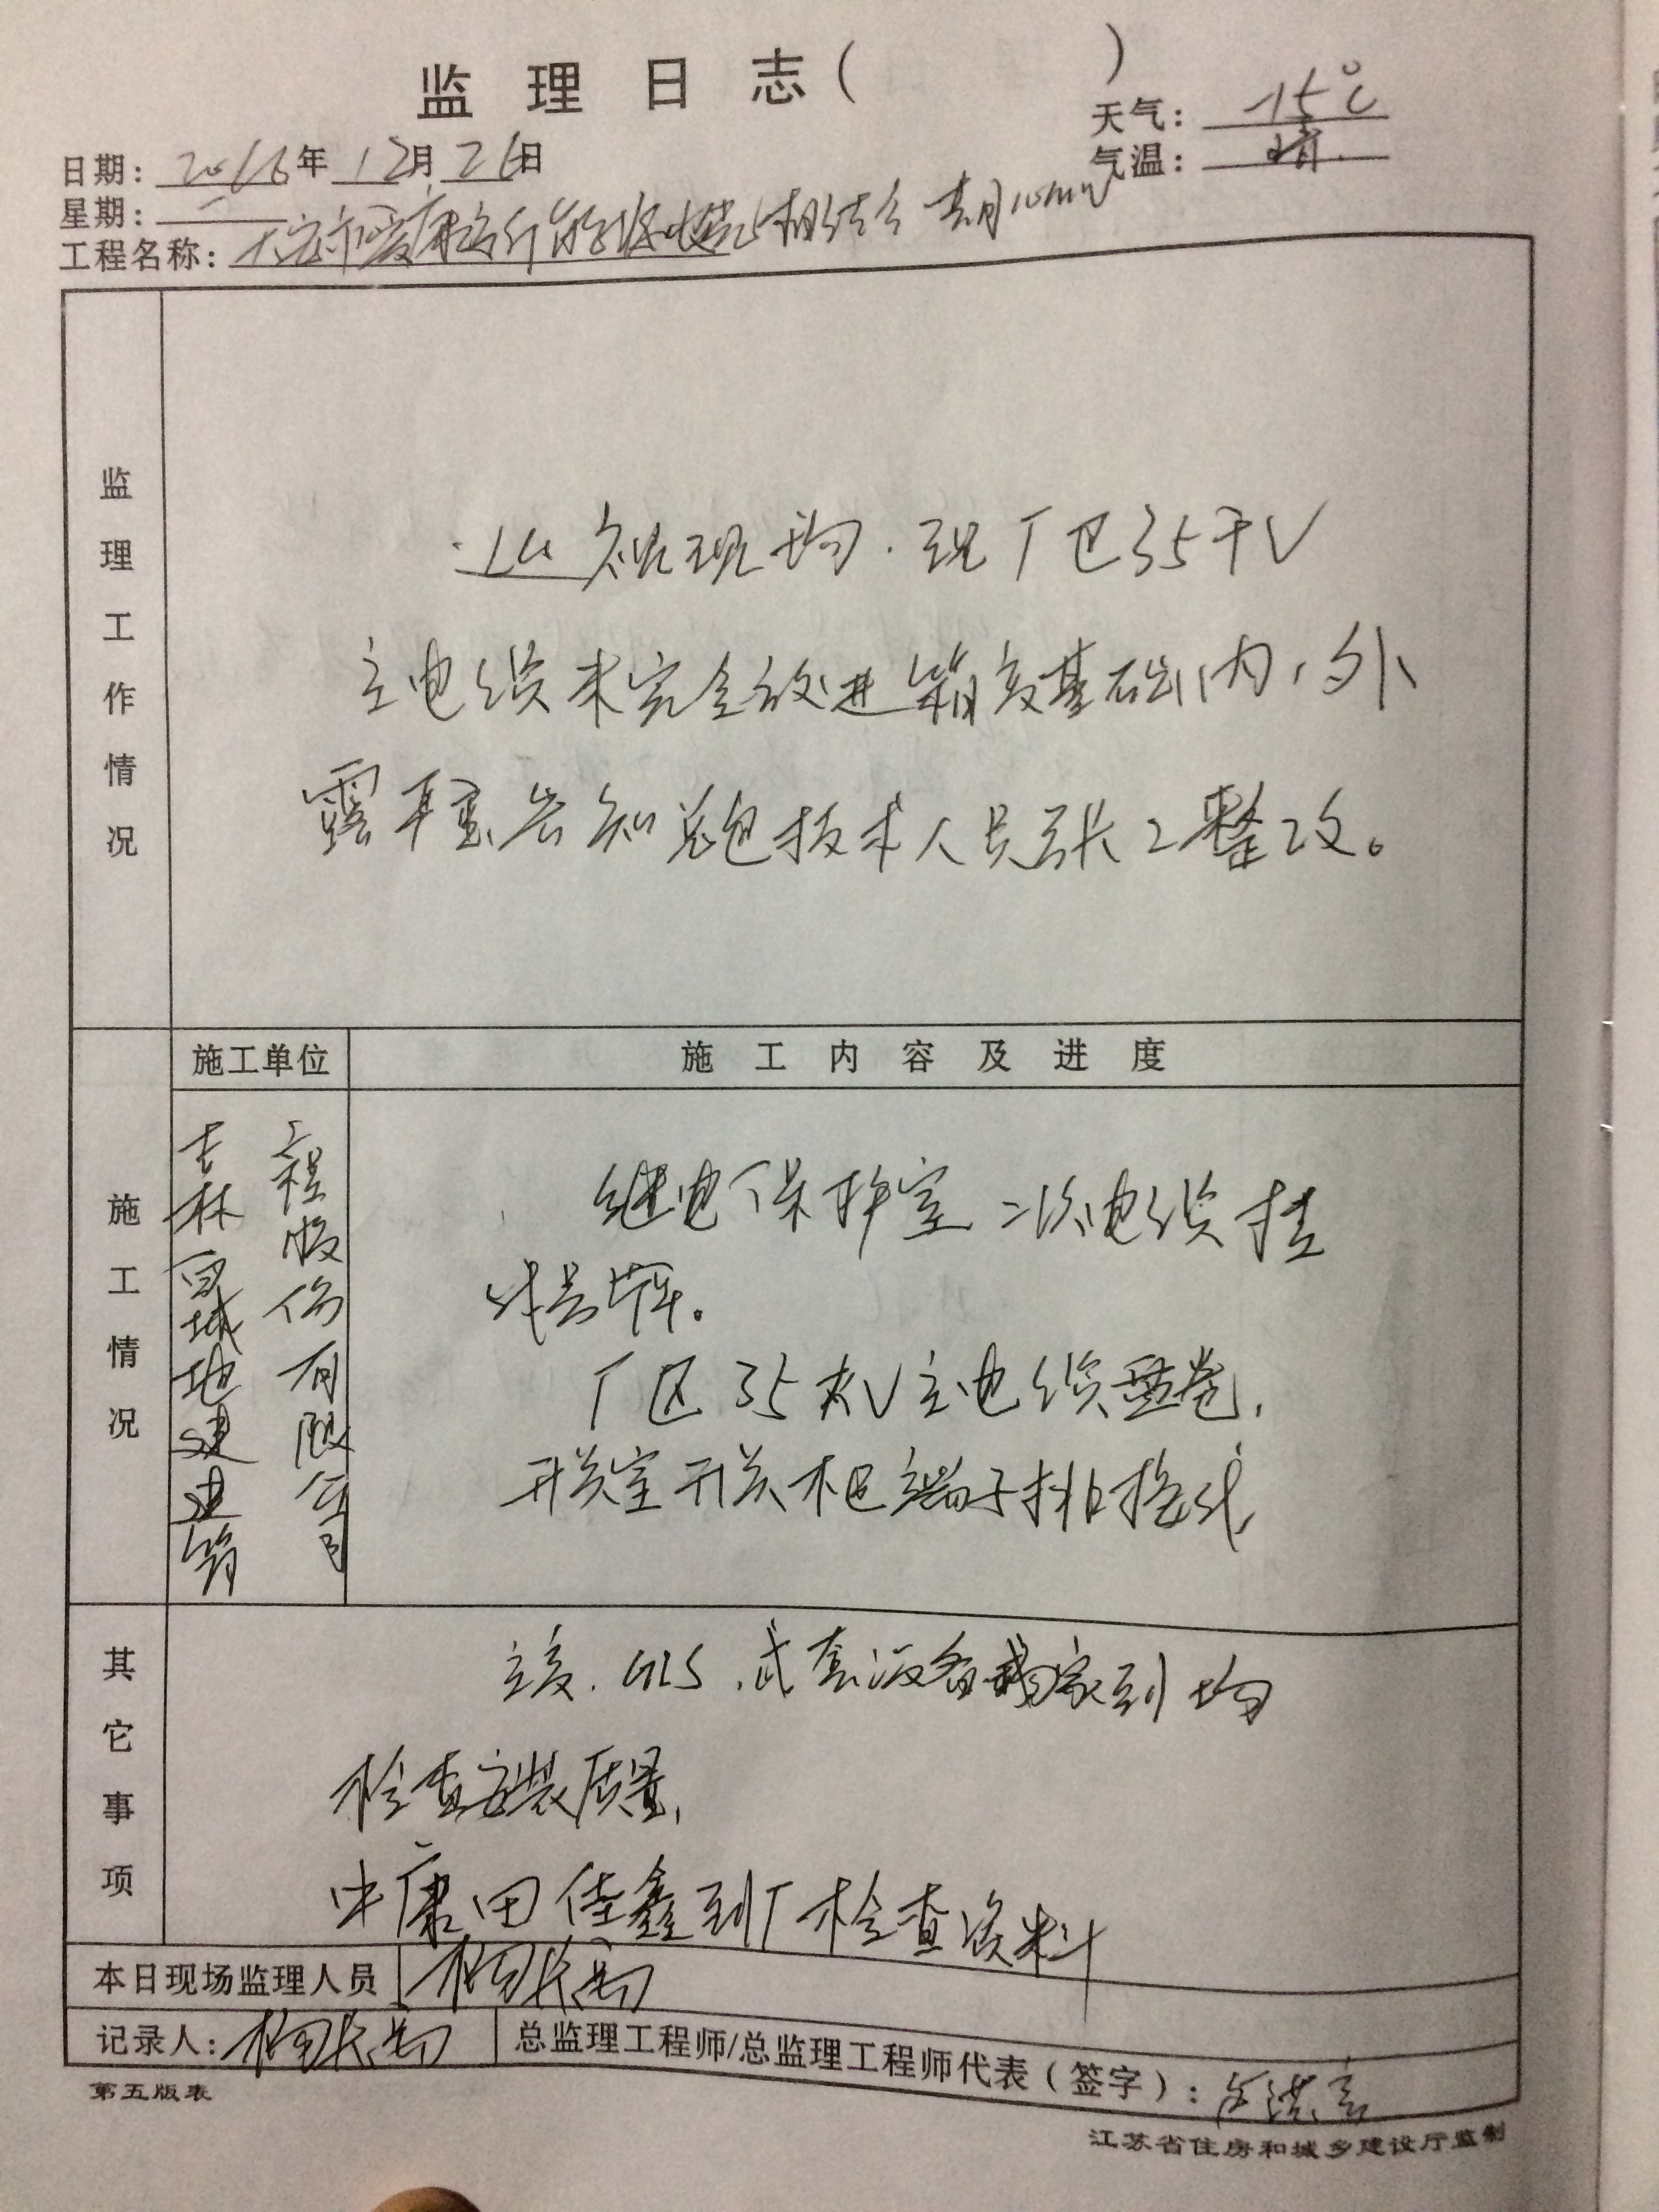 监理日志（ ）
天气：-15℃
日期：2016年12月26日
气温：晴.
星期：一
工程名称：大安市爱康 10MW
监理工作情况
巡视现场.现厂区35千V
主电缆未完全放进箱变基础内，外
露 告知总包技术人员张工整改。
施工情况
施工单位
施工内容及进度
吉林 地建筑
工程股份有限公司
继电保护室二次电缆挂
线号牌。
厂区35千V主电缆盘卷，
开关室开关柜端子排接线
其它事项
主变.GIS.成套设备 家到场
检查安装质量，
中康田佳鑫到厂检查资料
本日现场监理人员
记录人：
总监理工程师/总监理工程师代表（签字）：
第五版表
江苏省住房和城乡建设厅监制